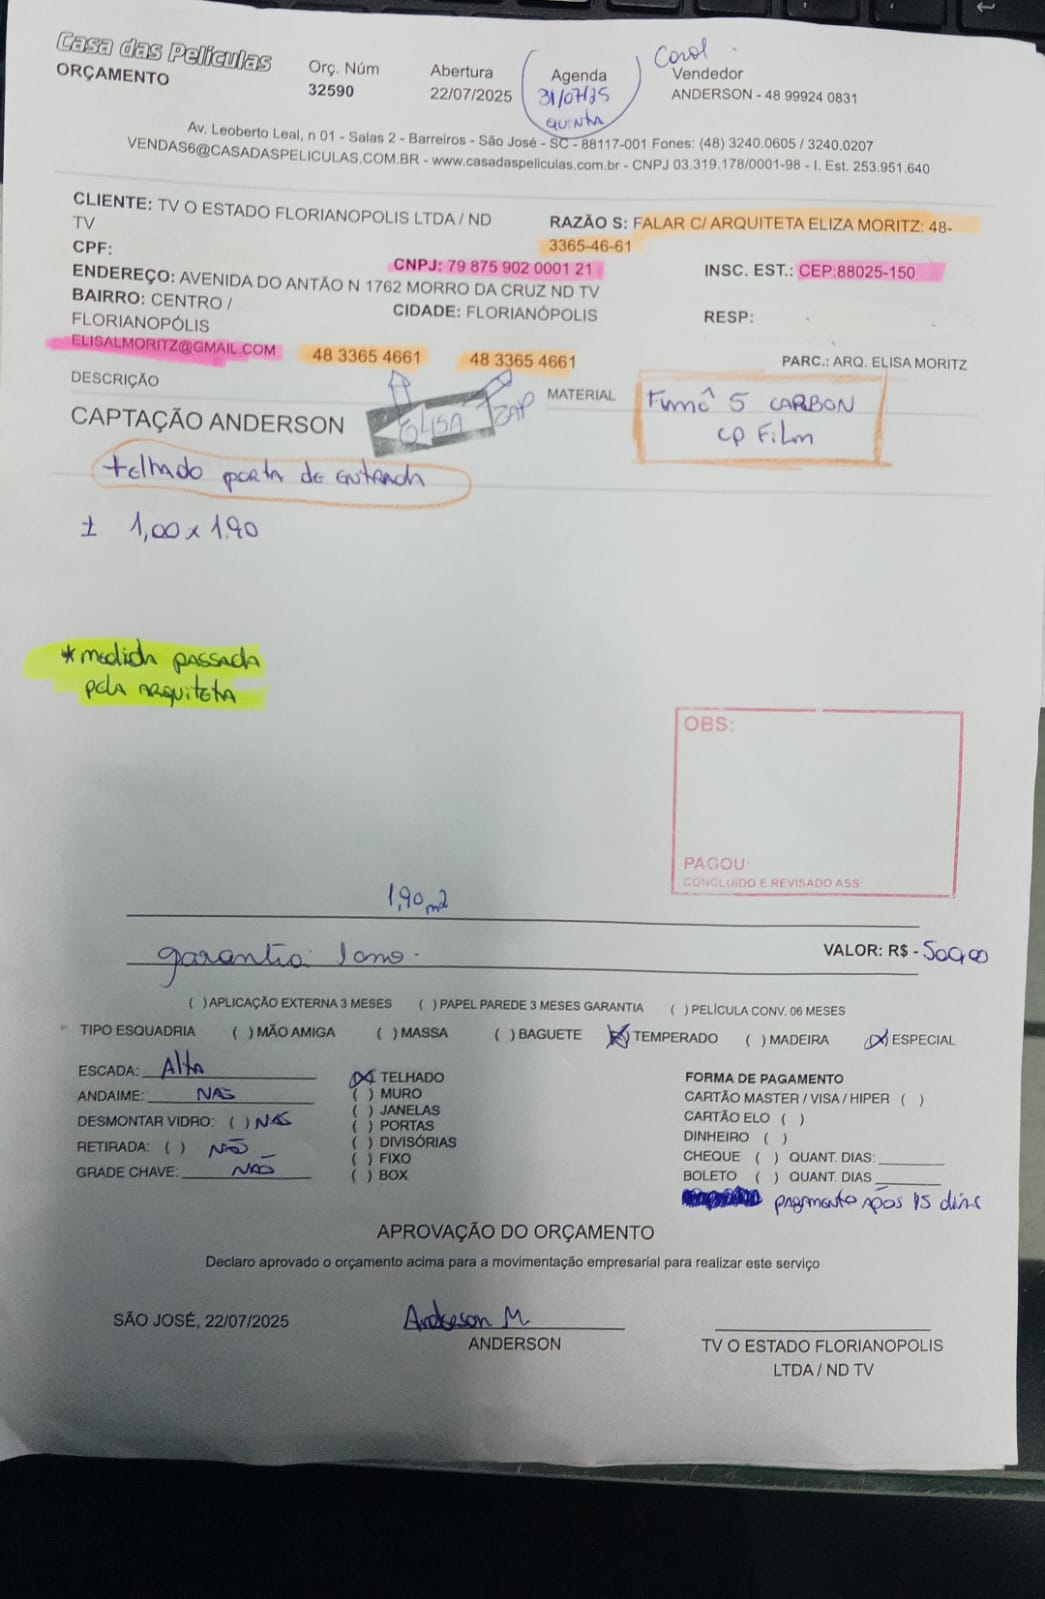 Casa das Películas
ORÇAMENTO
Orç. Núm
32590
Abertura
22/07/2025
Agenda
31/07/25
QUINTA
Carol
Vendedor
ANDERSON - 48 99924 0831
Av. Leoberto Leal, n 01 - Salas 2 - Barreiros - São José - SC - 88117-001 Fones: (48) 3240.0605 / 3240.0207
VENDAS6@CASADASPELICULAS.COM.BR - www.casadaspeliculas.com.br - CNPJ 03.319.178/0001-98 - I. Est. 253.951.640
CLIENTE: TV O ESTADO FLORIANOPOLIS LTDA / ND
TV
RAZÃO S: FALAR C/ ARQUITETA ELIZA MORITZ: 48-
3365-46-61
CPF:
CNPJ: 79 875 902 0001 21
INSC. EST.: CEP:88025-150
ENDEREÇO: AVENIDA DO ANTÃO N 1762 MORRO DA CRUZ ND TV
BAIRRO: CENTRO /
FLORIANOPÓLIS
CIDADE: FLORIANÓPOLIS
RESP:
ELISALMORITZ@GMAIL.COM
48 3365 4661
48 3365 4661
PARC.: ARQ. ELISA MORITZ
DESCRIÇÃO
MATERIAL
CAPTAÇÃO ANDERSON
ELISA
ZAP
Fumê 5 CARBON
CP Film
telhado porta de entrada
± 1,00 x 1.90
* medida passada
pela arquiteta
OBS:
PAGOU:
CONCLUIDO E REVISADO ASS
1,90 m2
garantia: 1 ano.
VALOR: R$ - 500,00
( )APLICAÇÃO EXTERNA 3 MESES ( )PAPEL PAREDE 3 MESES GARANTIA ( )PELÍCULA CONV. 06 MESES
TIPO ESQUADRIA ( )MÃO AMIGA ( )MASSA ( )BAGUETE (X)TEMPERADO ( )MADEIRA (X)ESPECIAL
ESCADA: Alta
ANDAIME: NÃO
DESMONTAR VIDRO: ( ) NÃO
RETIRADA: ( ) NÃO
GRADE CHAVE: NÃO
(X) TELHADO
( ) MURO
( ) JANELAS
( ) PORTAS
( ) DIVISÓRIAS
( ) FIXO
( ) BOX
FORMA DE PAGAMENTO
CARTÃO MASTER / VISA / HIPER ( )
CARTÃO ELO ( )
DINHEIRO ( )
CHEQUE ( ) QUANT. DIAS:
BOLETO ( ) QUANT. DIAS
pagamento após 15 dias
APROVAÇÃO DO ORÇAMENTO
Declaro aprovado o orçamento acima para a movimentação empresarial para realizar este serviço
SÃO JOSÉ, 22/07/2025
Anderson M.
ANDERSON
TV O ESTADO FLORIANOPOLIS
LTDA / ND TV